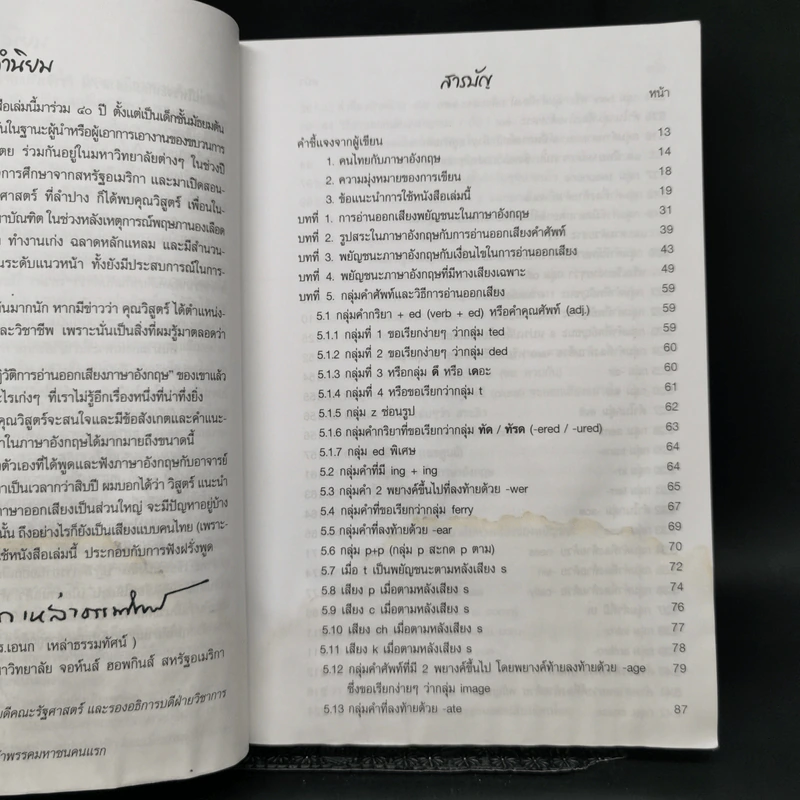 คำนิยม
สือเล่มนี้มาร่วม ๔๐ ปี ตั้งแต่เป็นเด็กชั้นมัธยมต้น
ในฐานะผู้นำหรือผู้เอาการเอางานของขบวนการ
ร่วมกันอยู่ในมหาวิทยาลัยต่างๆ ในช่วงปี
การศึกษาจากสหรัฐอเมริกา และมาเปิดสอน-
ศาสตร์ ที่ลำปาง ก็ได้พบคุณวิสูตร์ เพื่อนใน-
าบัณฑิต ในช่วงหลังเหตุการณ์พฤษภานองเลือด
ทำงานเก่ง ฉลาดหลักแหลม และมีสำนวน-
นระดับแนวหน้า ทั้งยังมีประสบการณ์ในการ-
ันมากนัก หากมีข่าวว่า คุณวิสูตร์ ได้ตำแหน่ง-
และวิชาชีพ เพราะนั่นเป็นสิ่งที่ผมรู้มาตลอดว่า
ฏิวัติการอ่านออกเสียงภาษาอังกฤษ" ของเขาแล้ว
ะไรเก่งๆ ที่เราไม่รู้อีกเรื่องหนึ่งที่น่าทึ่งยิ่ง
คุณวิสูตร์จะสนใจและมีข้อสังเกตและคำแนะ-
าในภาษาอังกฤษได้มากมายถึงขนาดนี้
งตัวเองที่ได้พูดและฟังภาษาอังกฤษกับอาจารย์
าเป็นเวลากว่าสิบปี ผมบอกได้ว่า วิสูตร์ แนะนำ
ภาษาออกเสียงเป็นส่วนใหญ่ จะมีปัญหาอยู่บ้าง
นั้น ถึงอย่างไรก็ยังเป็นเสียงแบบคนไทย (เพราะ-
ใช้หนังสือเล่มนี้ ประกอบกับการฟังฝรั่งพูด
เหล่าธรรมทัศน์
ร.เอนก เหล่าธรรมทัศน์ )
าวิทยาลัย จอห์นส์ ฮอพกินส์ สหรัฐอเมริกา
บดีคณะรัฐศาสตร์ และรองอธิการบดีฝ่ายวิชาการ
าพรรคมหาชนคนแรก
สารบัญ
หน้า
คำชี้แจงจากผู้เขียน 13
1. คนไทยกับภาษาอังกฤษ 14
2. ความมุ่งหมายของการเขียน 18
3. ข้อแนะนำการใช้หนังสือเล่มนี้ 19
บทที่ 1. การอ่านออกเสียงพยัญชนะในภาษาอังกฤษ 31
บทที่ 2. รูปสระในภาษาอังกฤษกับการอ่านออกเสียงคำศัพท์ 39
บทที่ 3. พยัญชนะภาษาอังกฤษกับเงื่อนไขในการอ่านออกเสียง 43
บทที่ 4. พยัญชนะภาษาอังกฤษที่มีหางเสียงเฉพาะ 49
บทที่ 5. กลุ่มคำศัพท์และวิธีการอ่านออกเสียง 59
5.1 กลุ่มคำกริยา + ed (verb + ed) หรือคำคุณศัพท์ (adj.) 59
5.1.1 กลุ่มที่ 1 ขอเรียกง่ายๆ ว่ากลุ่ม ted 59
5.1.2 กลุ่มที่ 2 ขอเรียกง่ายๆ ว่ากลุ่ม ded 60
5.1.3 กลุ่มที่ 3 หรือกลุ่ม ดึ หรือ เดอะ 60
5.1.4 กลุ่มที่ 4 หรือขอเรียกว่ากลุ่ม t 61
5.1.5 กลุ่ม z ซ่อนรูป 62
5.1.6 กลุ่มคำกริยาที่ขอเรียกว่ากลุ่ม ทัด / ทัรด (-ered / -ured) 63
5.1.7 กลุ่ม ed พิเศษ 64
5.2 กลุ่มคำที่มี ing + ing 64
5.3 กลุ่มคำ 2 พยางค์ขึ้นไปที่ลงท้ายด้วย -wer 65
5.4 กลุ่มคำที่ขอเรียกว่ากลุ่ม ferry 67
5.5 กลุ่มคำที่ลงท้ายด้วย -ear 69
5.6 กลุ่ม p+p (กลุ่ม p สะกด p ตาม) 70
5.7 เมื่อ t เป็นพยัญชนะตามหลังเสียง s 72
5.8 เสียง p เมื่อตามหลังเสียง s 74
5.9 เสียง c เมื่อตามหลังเสียง s 76
5.10 เสียง ch เมื่อตามหลังเสียง s 77
5.11 เสียง k เมื่อตามหลังเสียง s 78
5.12 กลุ่มคำศัพท์ที่มี 2 พยางค์ขึ้นไป โดยพยางค์ท้ายลงท้ายด้วย -age 79
ซึ่งขอเรียกง่ายๆ ว่ากลุ่ม image
5.13 กลุ่มคำที่ลงท้ายด้วย -ate 87